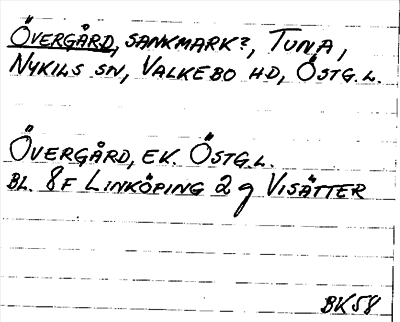 ÖVERGÅRD, SANKMARK?, TUNA,
NYKILS SN, VALKEBO HD, ÖSTG.L.
ÖVERGÅRD, EK. ÖSTG.L.
BL. 8F LINKÖPING 2g VISÄTTER
BK58